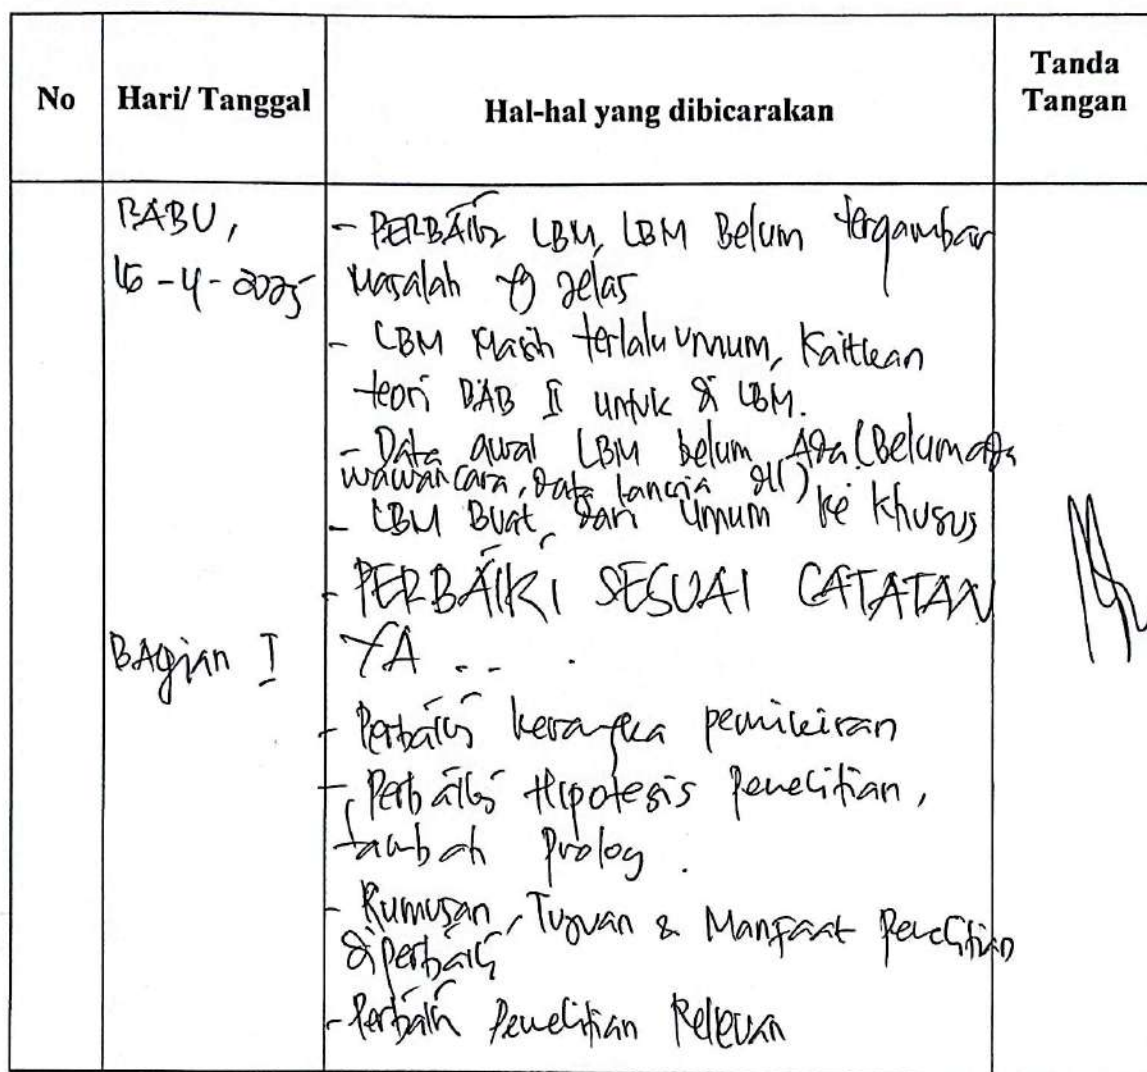 No Hari/ Tanggal Hal-hal yang dibicarakan Tanda Tangan
RABU,
16-4-2025
- PERBAIKI LBM, LBM Belum tergambar
masalah yg jelas
- LBM Masih terlalu umum, Kaitkan
teori BAB II untuk di LBM.
- Data awal LBM belum Ada (Belum ada
wawancara, data dll)
- LBM Buat dari Umum ke khusus
- PERBAIKI SESUAI CATATAN
YA ...
BAgian I
- Perbaiki kerangka pemikiran
- Perbaiki Hipotesis Penelitian,
tambah Prolog.
- Rumusan, Tujuan & Manfaat Penelitian
diperbaiki
- Perbaiki Penelitian Relevan